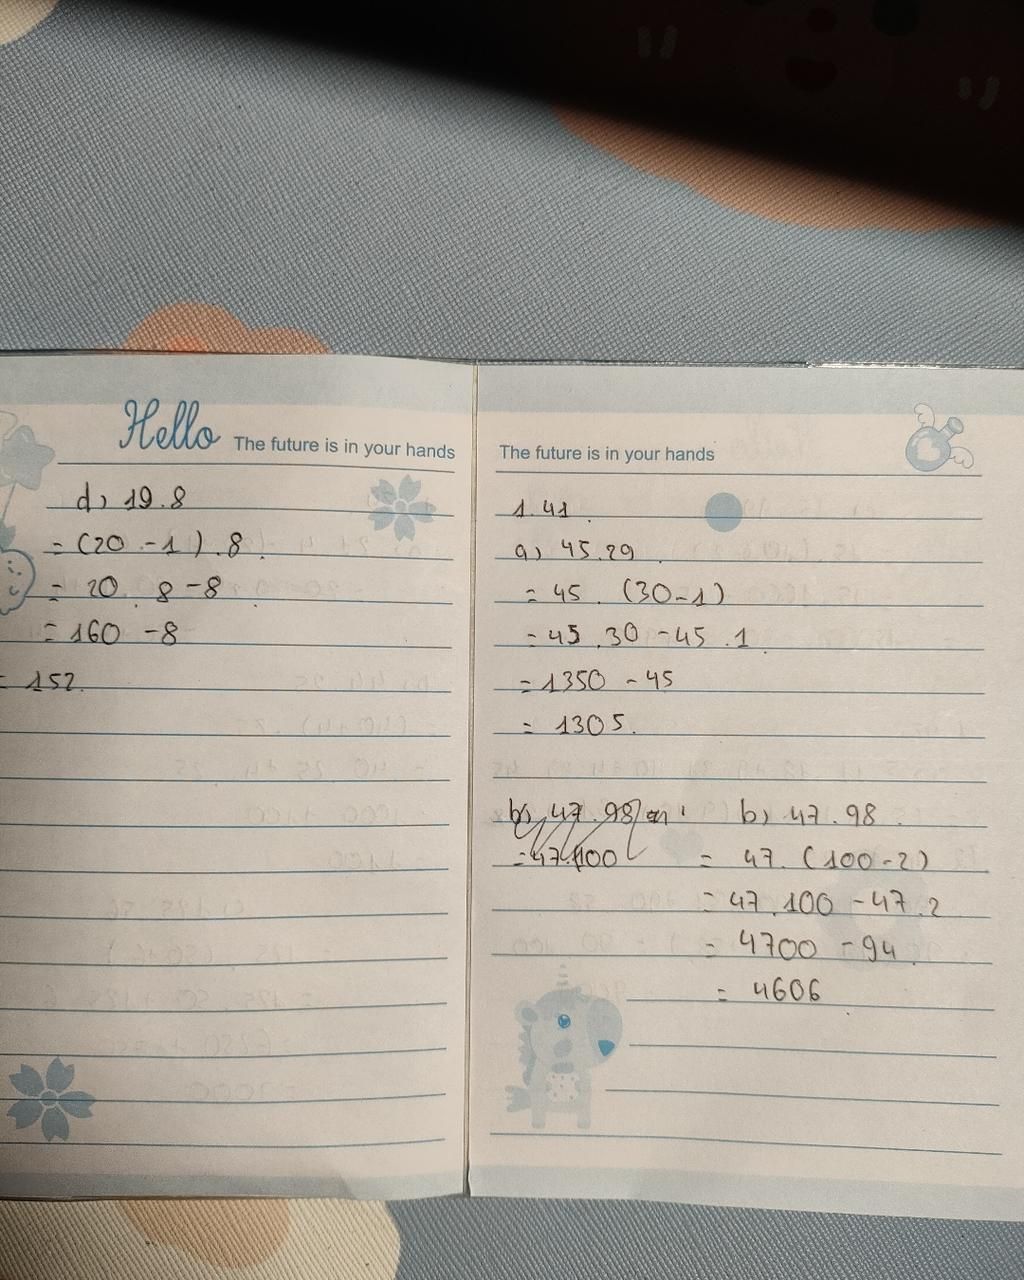 Hello The future is in your hands
d) 19.8
= (20 - 1) . 8
= 20 . 8 - 8
= 160 - 8
= 152
The future is in your hands
1.41
a) 45.29
= 45 . (30 - 1)
= 45 . 30 - 45 . 1
= 1350 - 45
= 1305.
b) 47.98
= 47.100
b) 47.98
= 47. (100 - 2)
= 47.100 - 47.2
= 4700 - 94
= 4606